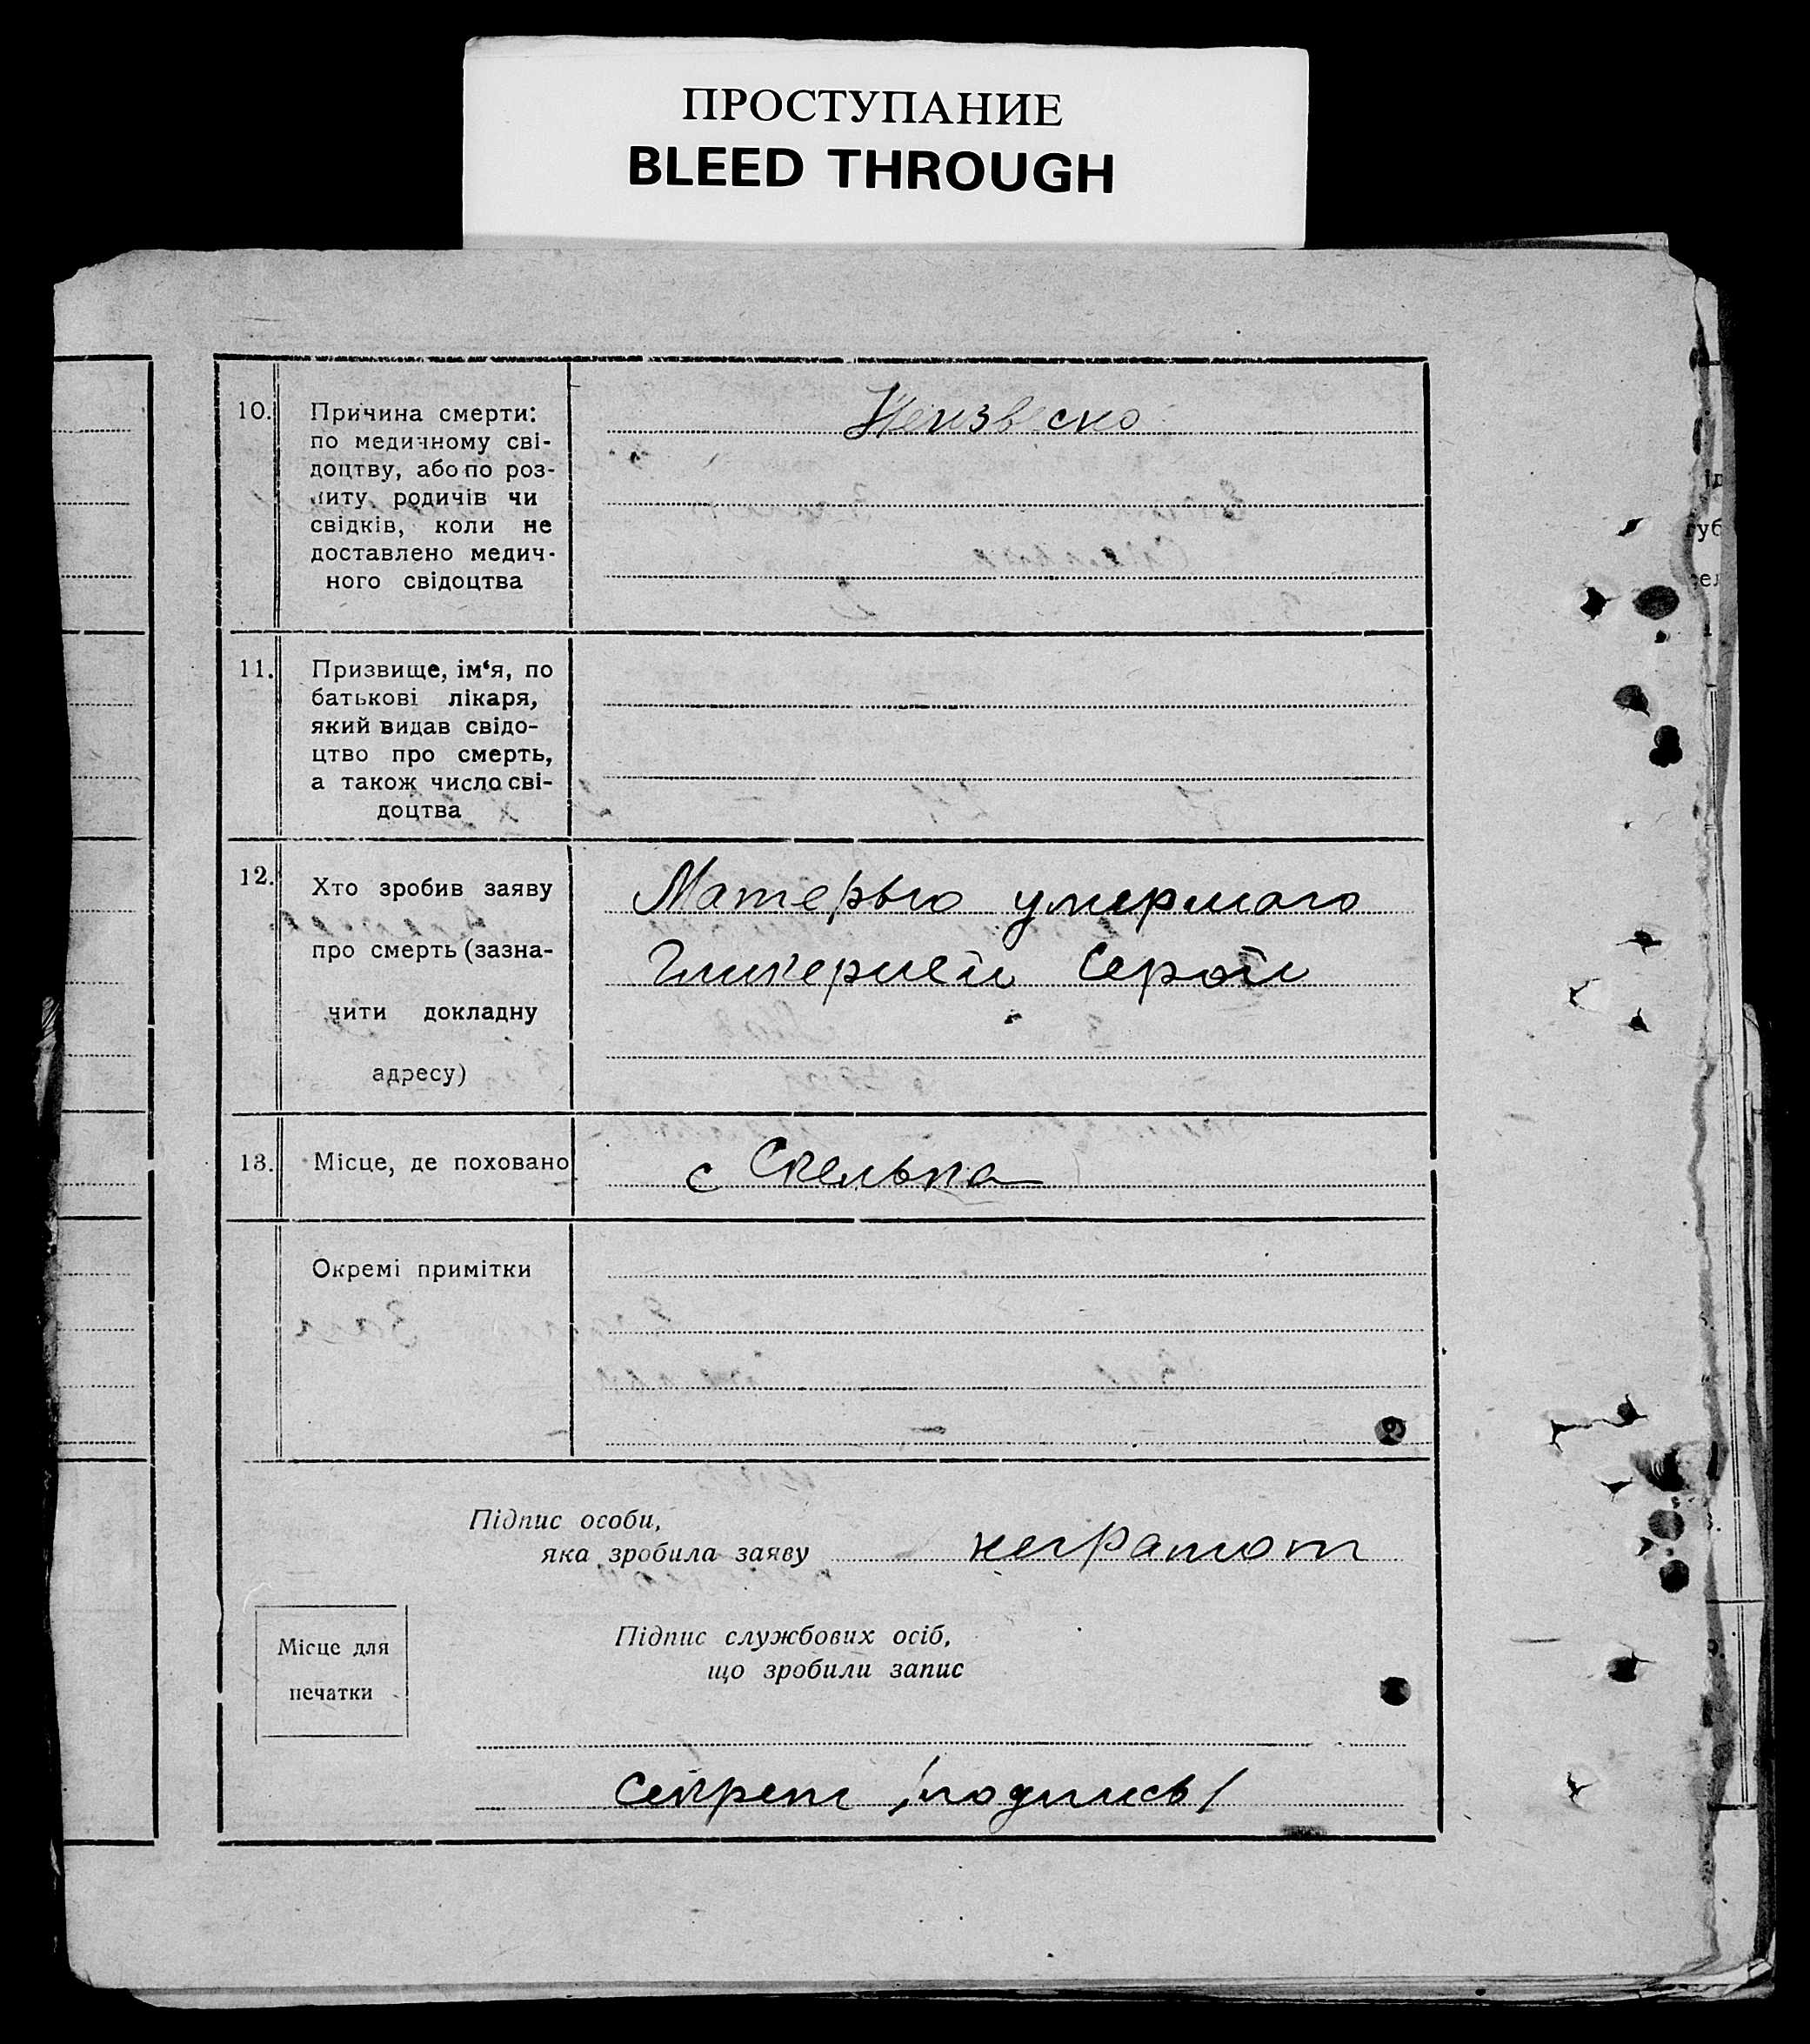 ПРОСТУПАНИЕ
BLEED THROUGH
10.
Причина смерти:
по медичному сві-
доцтву, або по роз-
питу родичів чи
свідків, коли не
доставлено медич-
ного свідоцтва
Неизвесно
11.
Призвище, ім‘я, по
батькові лікаря,
який видав свідо-
цтво про смерть,
а також число сві-
доцтва
12.
Хто зробив заяву
про смерть (зазна-
чити докладну
адресу)
Матерью умермаго
Гликерией Серой
13.
Місце, де поховано
с Скелька
Окремі примітки
Підпис особи,
яка зробила заяву
неграмот
Місце для
печатки
Підпис службових осіб,
що зробили запис
Секрет /подпись/